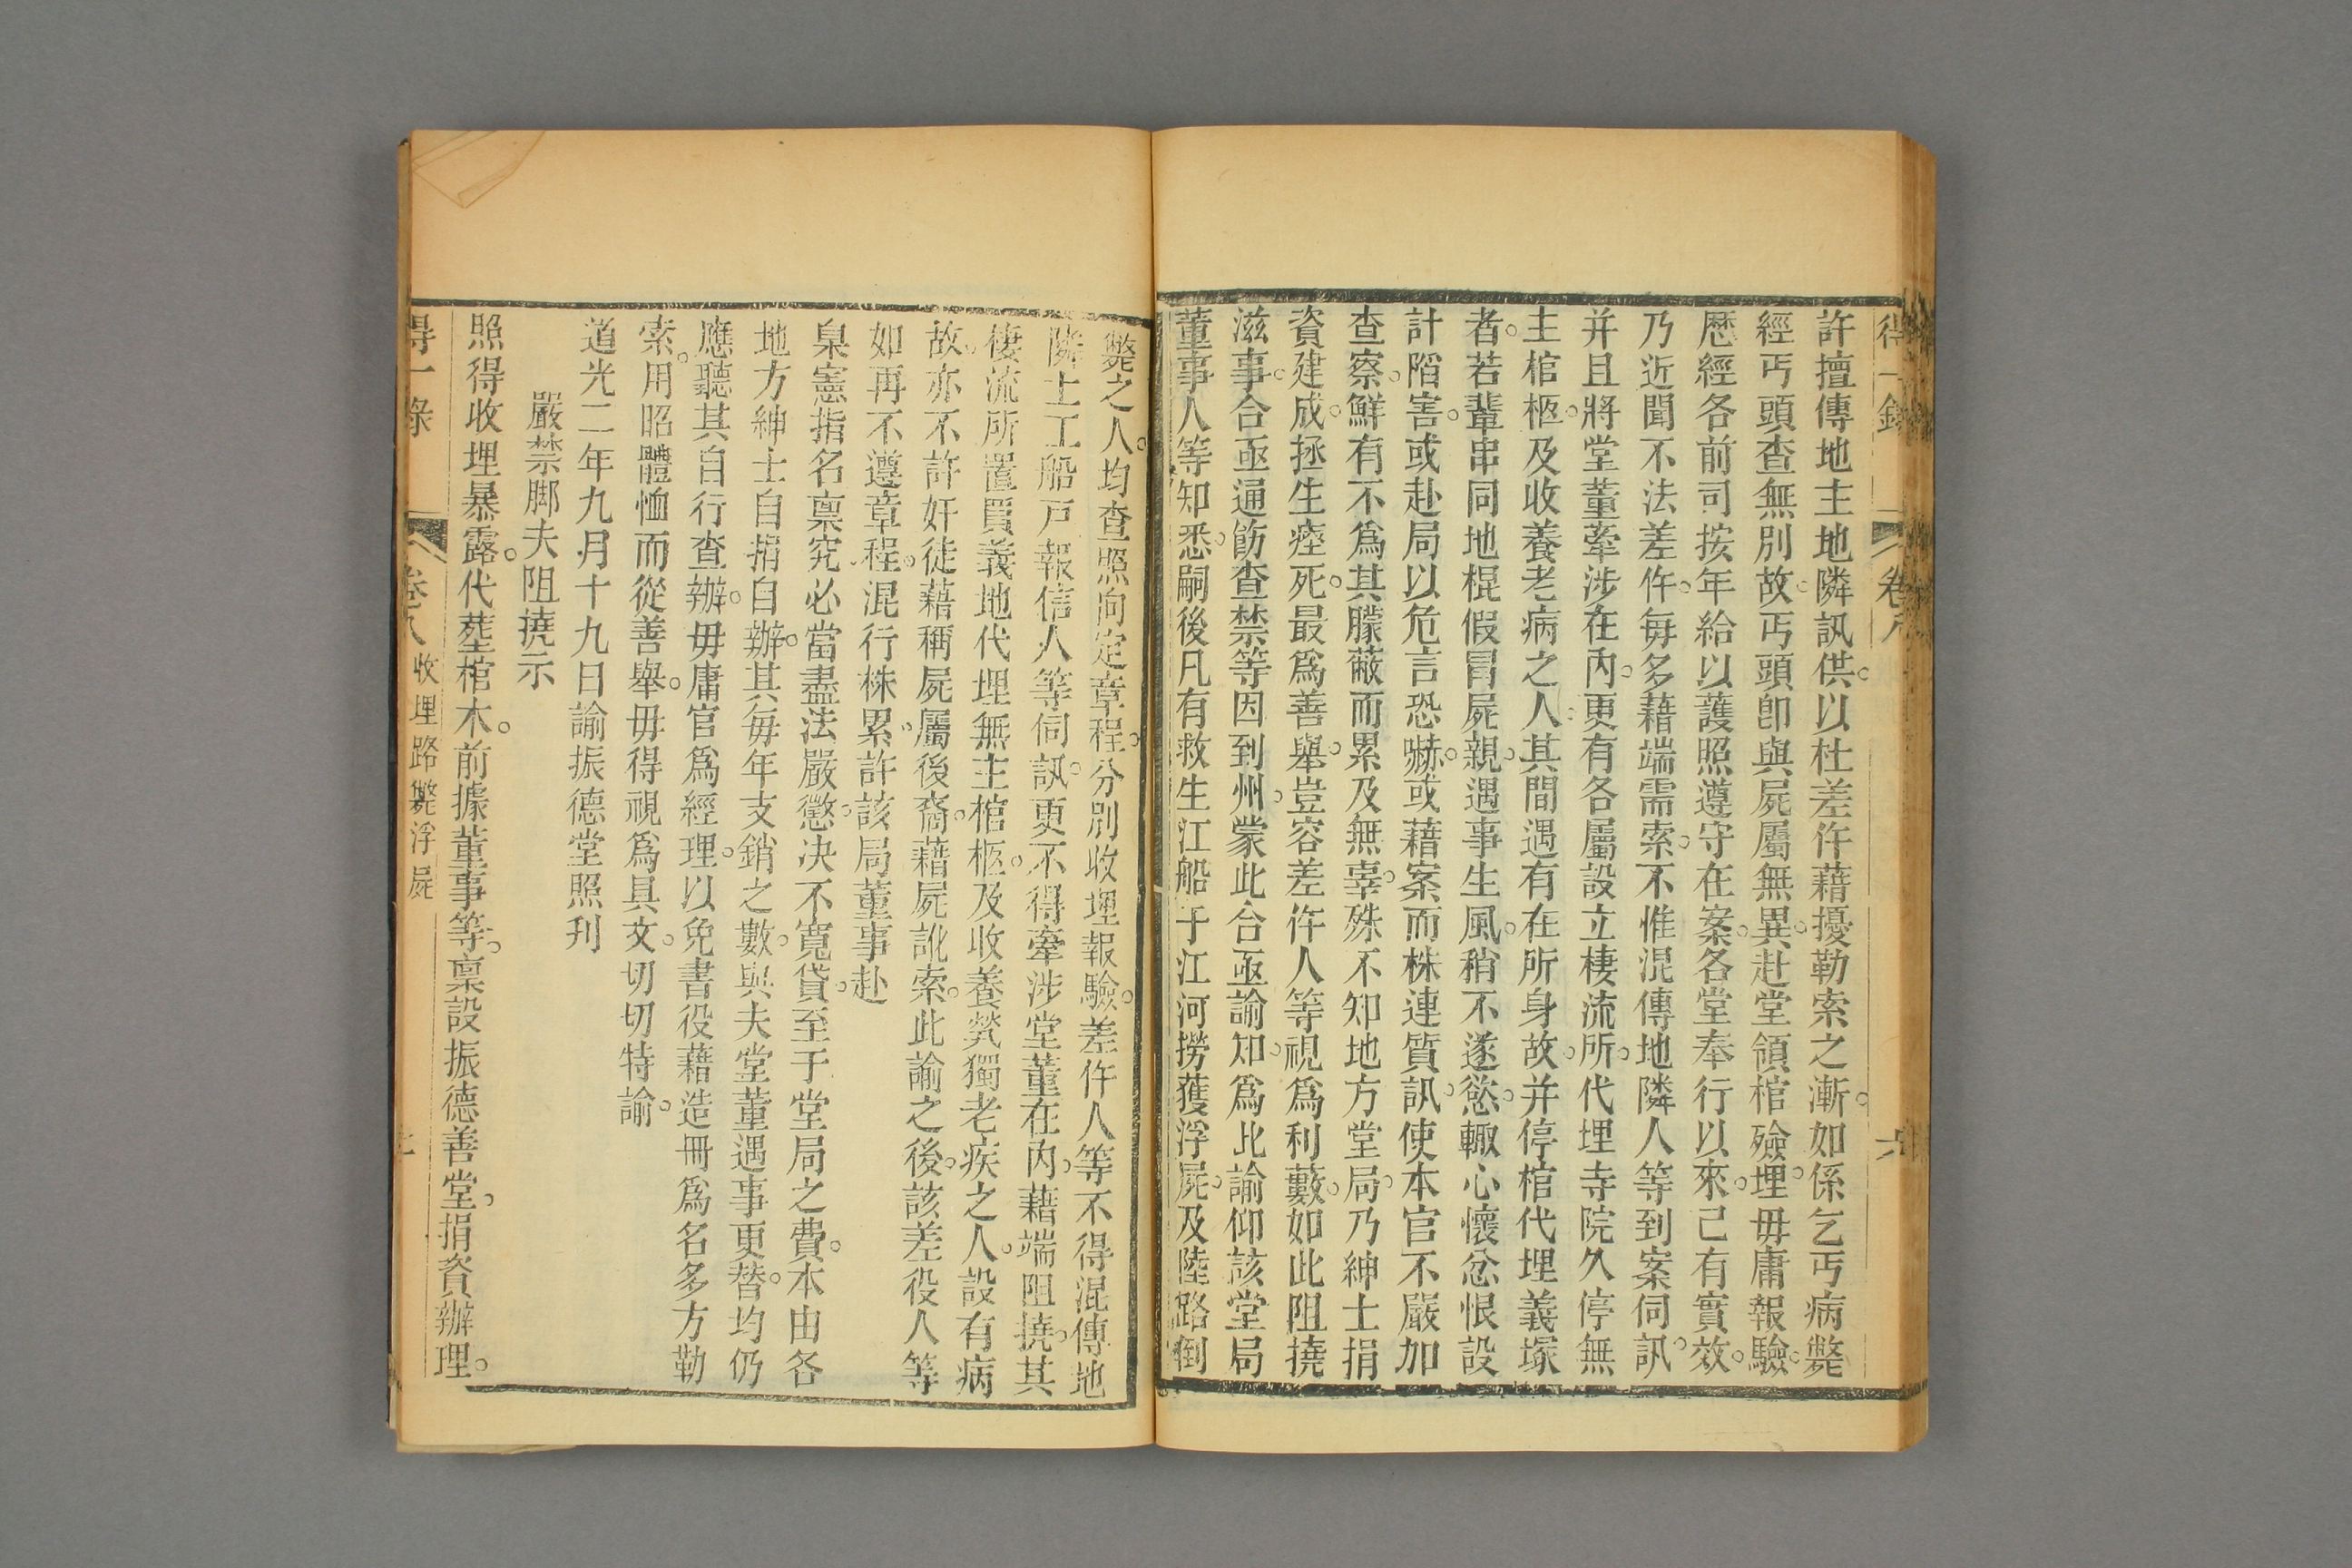 得一錄 卷八 六
許擅傳地主地隣訊供。以杜差仵藉擾勒索之漸。如係乞丐病斃
經丐頭查無別故。丐頭卽與屍屬無異。赴堂領棺殮埋。毋庸報驗。
歷經各前司按年給以護照遵守在案。各堂奉行以來。己有實效。
乃近聞不法差仵。每多藉端需索。不惟混傳地隣人等到案伺訊。
并且將堂董牽涉在內。更有各屬設立棲流所。代埋寺院久停無
主棺柩。及收養老病之人。其間遇有在所身故。并停棺代埋義塚
者。若輩串同地棍假冒屍親。遇事生風。稍不遂慾。輒心懷忿恨設
計陷害。或赴局以危言恐嚇。或藉案而株連質訊。使本官不嚴加
查察。鮮有不爲其朦蔽而累及無辜。殊不知地方堂局。乃紳士捐
資建成。拯生瘞死。最爲善舉。豈容差仵人等視爲利藪。如此阻撓
滋事。合亟通飭查禁等因到州。蒙此合亟諭知。爲此諭仰該堂局
董事人等知悉。嗣後凡有救生江船于江河撈獲浮屍。及陸路倒
斃之人。均查照向定章程。分別收埋報驗。差仵人等不得混傳地
隣土工船戶報信人等伺訊。更不得牽涉堂董在內。藉端阻撓。其
棲流所置買義地代埋無主棺柩。及收養煢獨老疾之人。設有病
故。亦不許奸徒藉稱屍屬後裔。藉屍訛索。此諭之後。該差役人等
如再不遵章程。混行株累。許該局董事赴
臬憲指名稟究必當盡法嚴懲。决不寬貸。至于堂局之費。本由各
地方紳士自捐自辦。其每年支銷之數。與夫堂董遇事更替。均仍
應聽其自行查辦。毋庸官爲經理。以免書役藉造冊爲名多方勒
索。用昭體恤而從善舉。毋得視爲具文。切切特諭。
道光二年九月十九日諭振德堂照刋
嚴禁脚夫阻撓示
照得收埋暴露。代塟棺木。前據董事等。稟設振德善堂。捐資辦理。
得一錄 卷八 收埋路斃浮屍